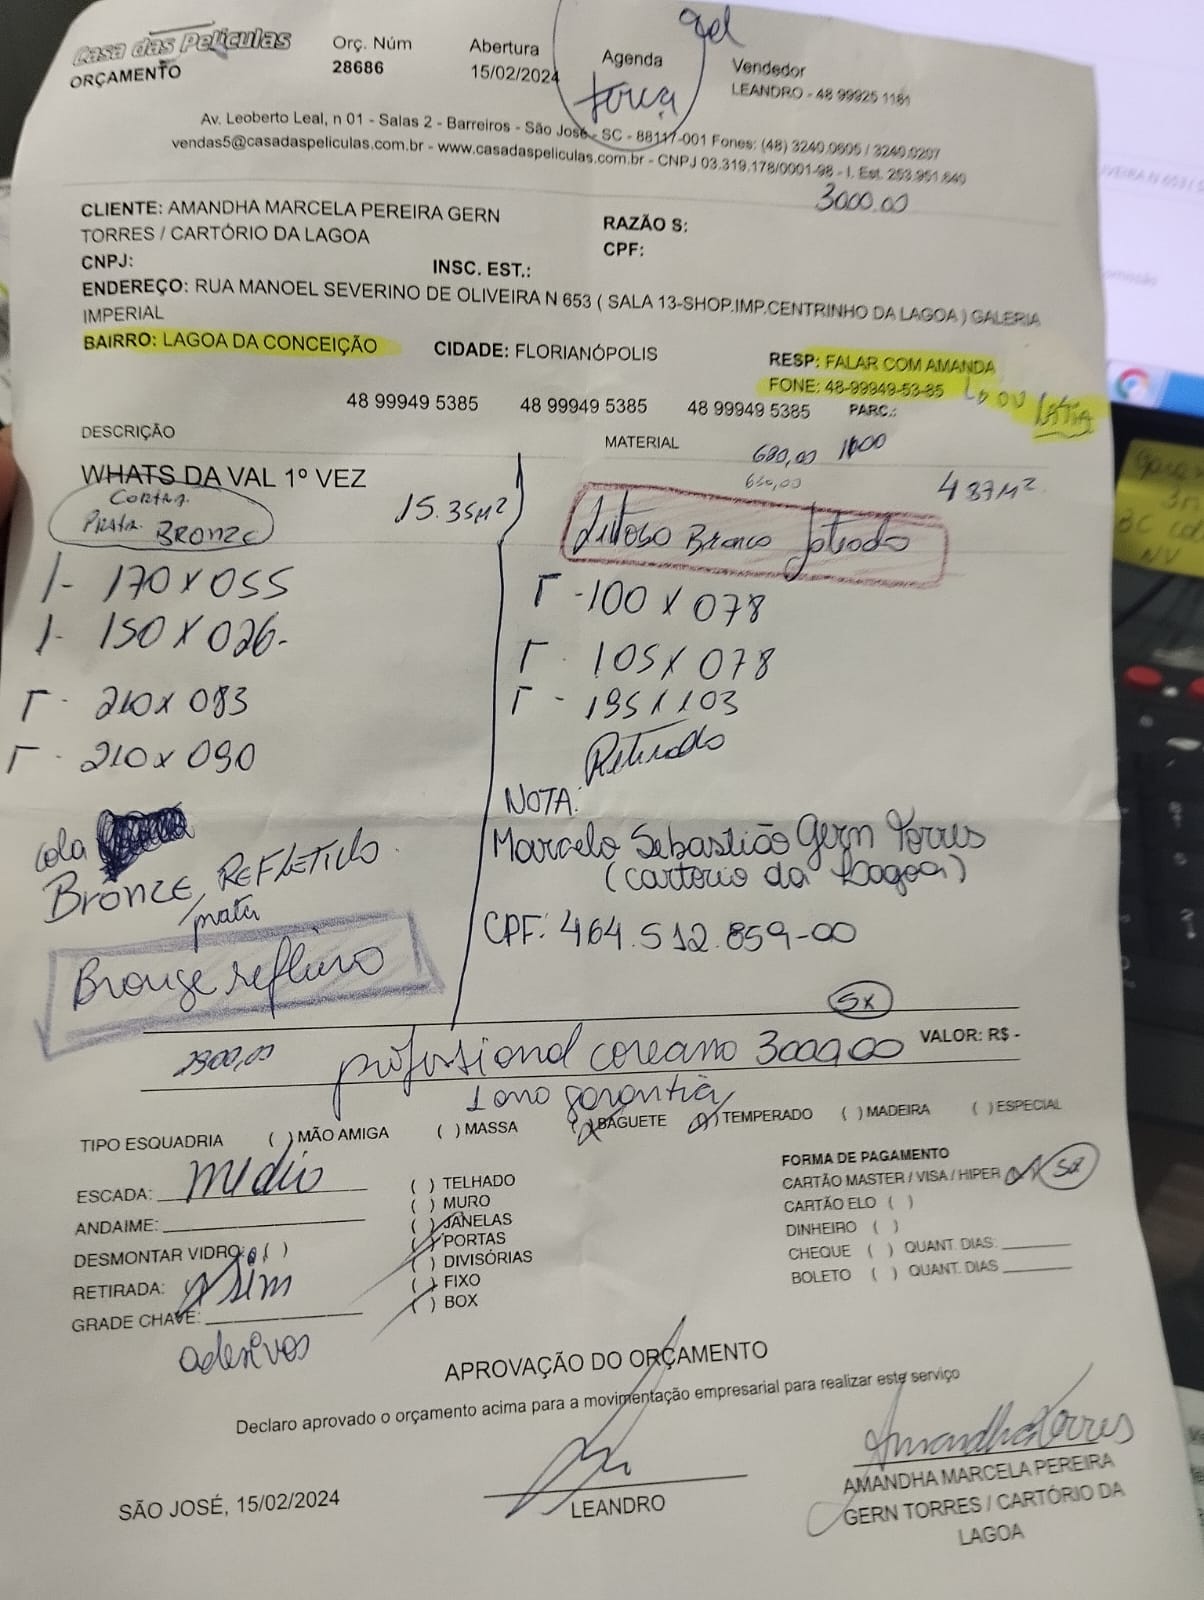 gel
Casa das Películas
ORÇAMENTO
Orç. Núm
28686
Abertura
15/02/2024
Agenda
terça
Vendedor
LEANDRO - 48 99925 1181
Av. Leoberto Leal, n 01 - Salas 2 - Barreiros - São José - SC - 88117-001 Fones: (48) 3240.0605 / 3240.0207
vendas5@casadaspeliculas.com.br - www.casadaspeliculas.com.br - CNPJ 03.319.178/0001-98 - I. Est. 253.951.640
3000.00
CLIENTE: AMANDHA MARCELA PEREIRA GERN
TORRES / CARTÓRIO DA LAGOA
RAZÃO S:
CPF:
CNPJ:
INSC. EST.:
ENDEREÇO: RUA MANOEL SEVERINO DE OLIVEIRA N 653 ( SALA 13-SHOP.IMP.CENTRINHO DA LAGOA ) GALERIA
IMPERIAL
BAIRRO: LAGOA DA CONCEIÇÃO
CIDADE: FLORIANÓPOLIS
RESP: FALAR COM AMANDA
FONE: 48-99949-53-85
OU
48 99949 5385 48 99949 5385 48 99949 5385 PARC.:
DESCRIÇÃO
MATERIAL
680,00
WHATS DA VAL 1º VEZ
PRATA BRONZE
15.35M²
4 87M²
Branco Jateado
1- 170 X 055
1- 150 X 026-
Γ - 210 X 083
Γ - 210 X 090
Γ - 100 X 078
Γ - 105 X 078
Γ - 195 X 103
Retirado
NOTA:
Marcelo Sebastião Gern Torres
(cartório da Lagoa)
CPF: 464.512.859-00
cola
Bronze REFLETIDO
/prata
Bronze reflexivo
5X
2300,00
profissional coreano 3000,00
VALOR: R$ -
1 ano garantia
TIPO ESQUADRIA ( ) MÃO AMIGA ( ) MASSA (X) BAGUETE (X) TEMPERADO ( ) MADEIRA ( ) ESPECIAL
ESCADA: médio
ANDAIME:
DESMONTAR VIDRO: ( )
RETIRADA: sim
GRADE CHAVE:
adesivos
( ) TELHADO
( ) MURO
( ) JANELAS
( ) PORTAS
( ) DIVISÓRIAS
( ) FIXO
( ) BOX
FORMA DE PAGAMENTO
CARTÃO MASTER / VISA / HIPER (X) 5X
CARTÃO ELO ( )
DINHEIRO ( )
CHEQUE ( ) QUANT. DIAS:
BOLETO ( ) QUANT. DIAS
APROVAÇÃO DO ORÇAMENTO
Declaro aprovado o orçamento acima para a movimentação empresarial para realizar este serviço
Amandha Torres
SÃO JOSÉ, 15/02/2024
LEANDRO
AMANDHA MARCELA PEREIRA
GERN TORRES / CARTÓRIO DA
LAGOA